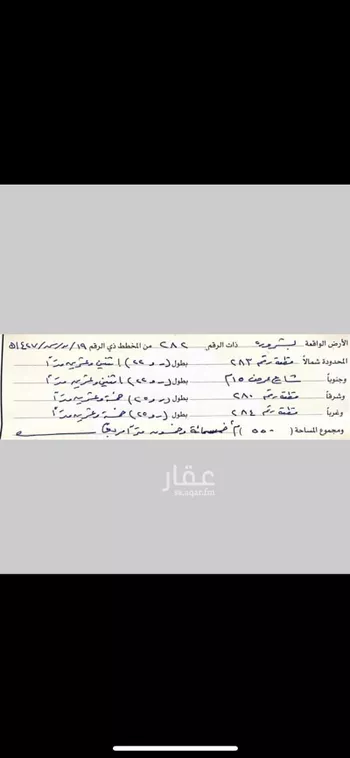 الأرض الواقعة بشروره ذات الرقم ٢٨٢ من المخطط ذي الرقم ١٩/ /١٤٢٧هـ
المحدودة شمالاً قطعة رقم ٢٨٣ بطول (٢٢٫٠٠) اثنين وعشرين متراً
وجنوباً شارع عرض ١٥م بطول (٢٢٫٠٠) اثنين وعشرين متراً
وشرقاً قطعة رقم ٢٨٠ بطول (٢٥٫٠٠) خمسة وعشرين متراً
وغرباً قطعة رقم ٢٨٤ بطول (٢٥٫٠٠) خمسة وعشرين متراً
ومجموع المساحة ( ٥٥٠ )م٢ خمسمائة وخمسون متراً مربعاً
عقار
sa.aqar.fm